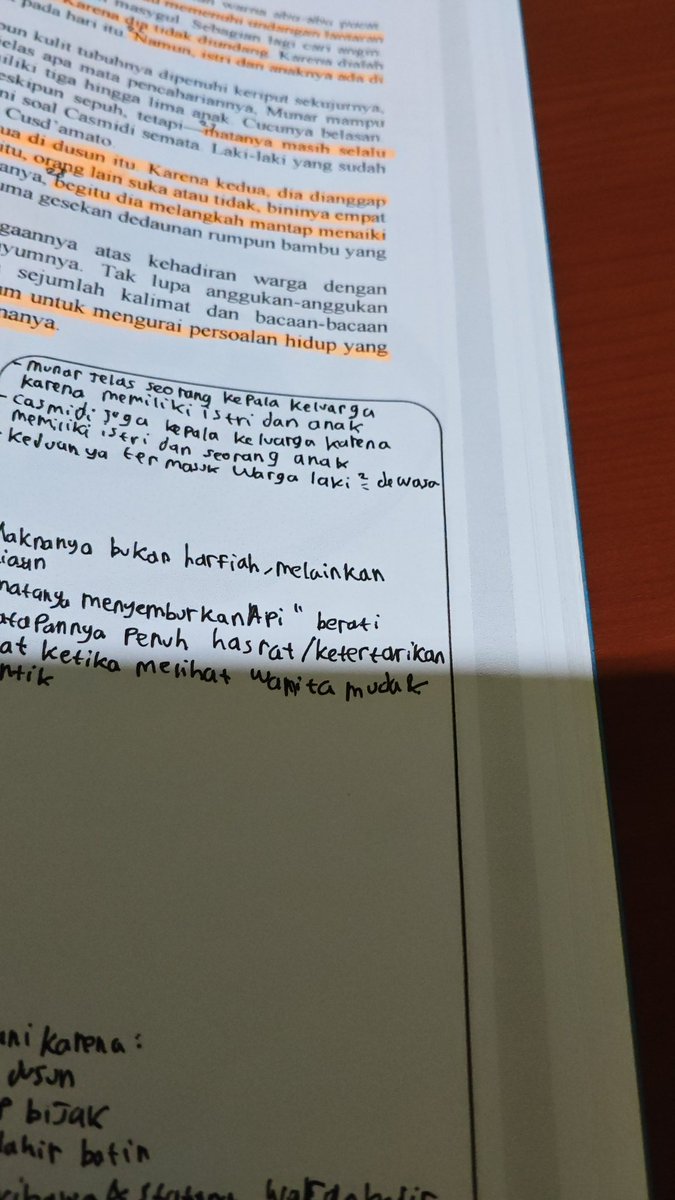 warna abu-abu pucat
memenuhi undangan lantaran
masygul. Sebagian lagi cari angin
Karena dia tidak diundang. Karena dialah
pada hari itu. Namun, istri dan anaknya ada di
pun kulit tubuhnya dipenuhi keriput sekujurnya,
jelas apa mata pencahariannya, Munar mampu
miliki tiga hingga lima anak. Cucunya belasan.
eskipun sepuh, tetapi matanya masih selalu
ni soal Casmidi semata. Laki-laki yang sudah
Cusd'amato.
ua di dusun itu. Karena kedua, dia dianggap
itu, orang lain suka atau tidak, bininya empat
anya, begitu dia melangkah mantap menaiki
uma gesekan dedaunan rumpun bambu yang
gaannya atas kehadiran warga dengan
yumnya. Tak lupa anggukan-anggukan
sejumlah kalimat dan bacaan-bacaan
um untuk mengurai persoalan hidup yang
nanya.
- Munar Jelas seorang kepala keluarga
karena memiliki istri dan anak
- Casmidi juga kepala keluarga karena
memiliki istri dan seorang anak
- keduanya termasuk warga laki² dewasa
Maknanya bukan harfiah, melainkan
iasan
matanya menyemburkan Api" berati
atapannya penuh hasrat/ketertarikan
at ketika melihat wanita muda &
ntik
ani karena:
dusun
bijak
lahir batin